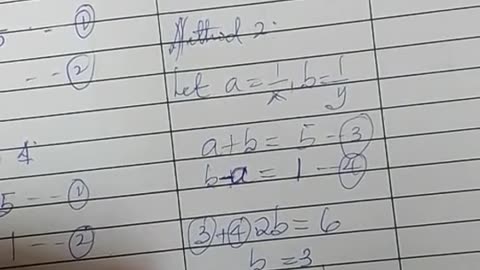 5 - - ①
- - ②
4
5 - - ①
1 - - ②
Method 2:
Let a = 1/x, b = 1/y
a+b = 5 - ③
b-a = 1 - ④
③+④ 2b = 6
b = 3